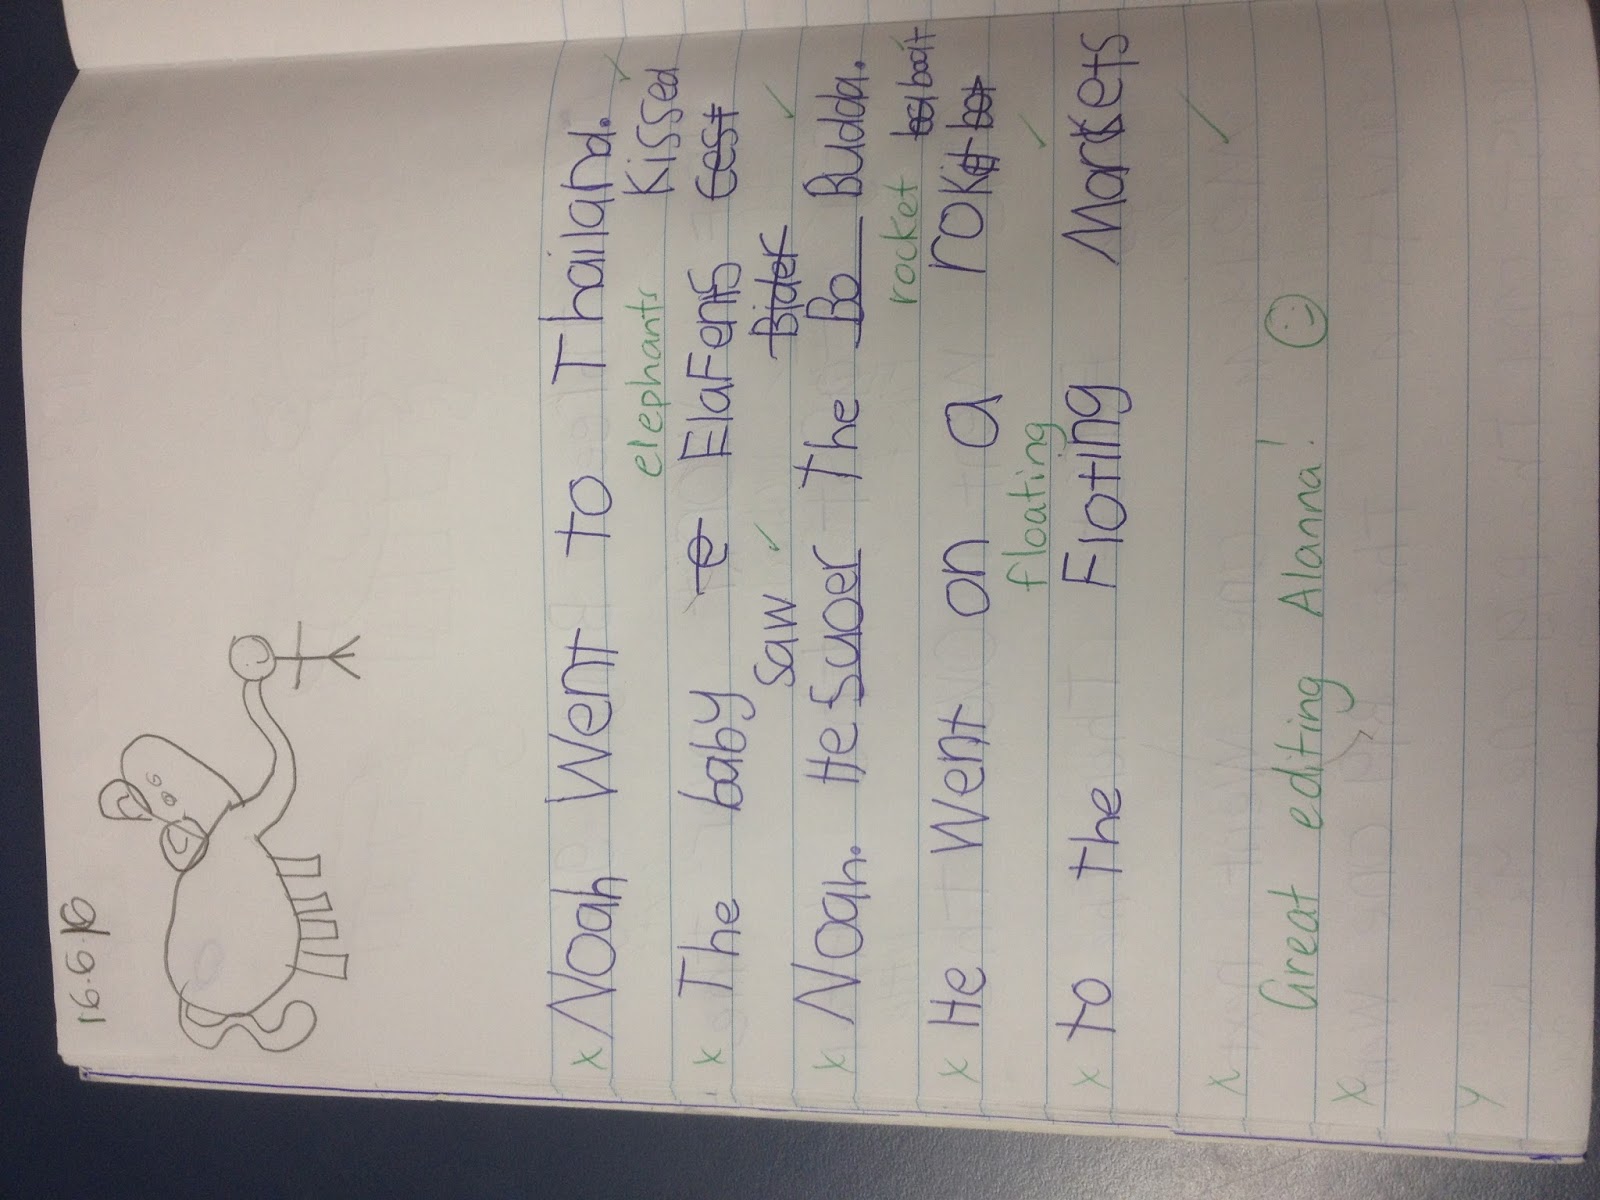 16.9.16
Noah Went to Thailand.
elephants Kissed
The baby e ElaFents cest
saw Bider
Noah. He suoer The Bo Budda.
rocket boat
He Went on a rokit bot
floating
to the Floting Markets
Great editing Alanna!